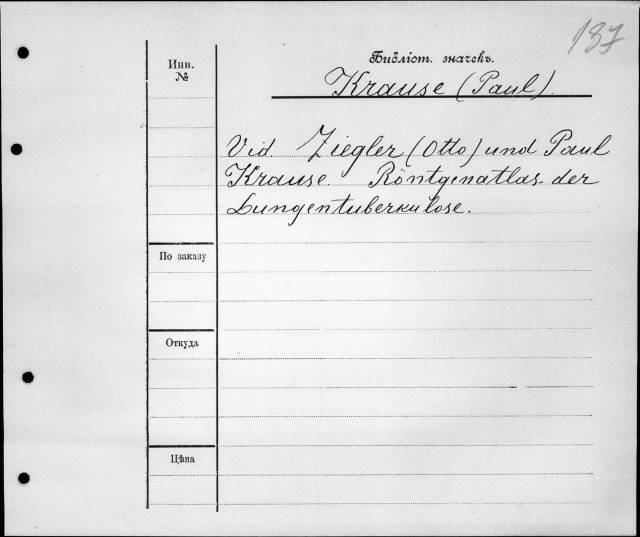 137
Библіот. значекъ.
Инв.
№
Krause (Paul).
Vid. Ziegler (Otto) und Paul
Krause. Röntgenatlas der
Lungentuberkulose.
По заказу
Откуда
Цѣна